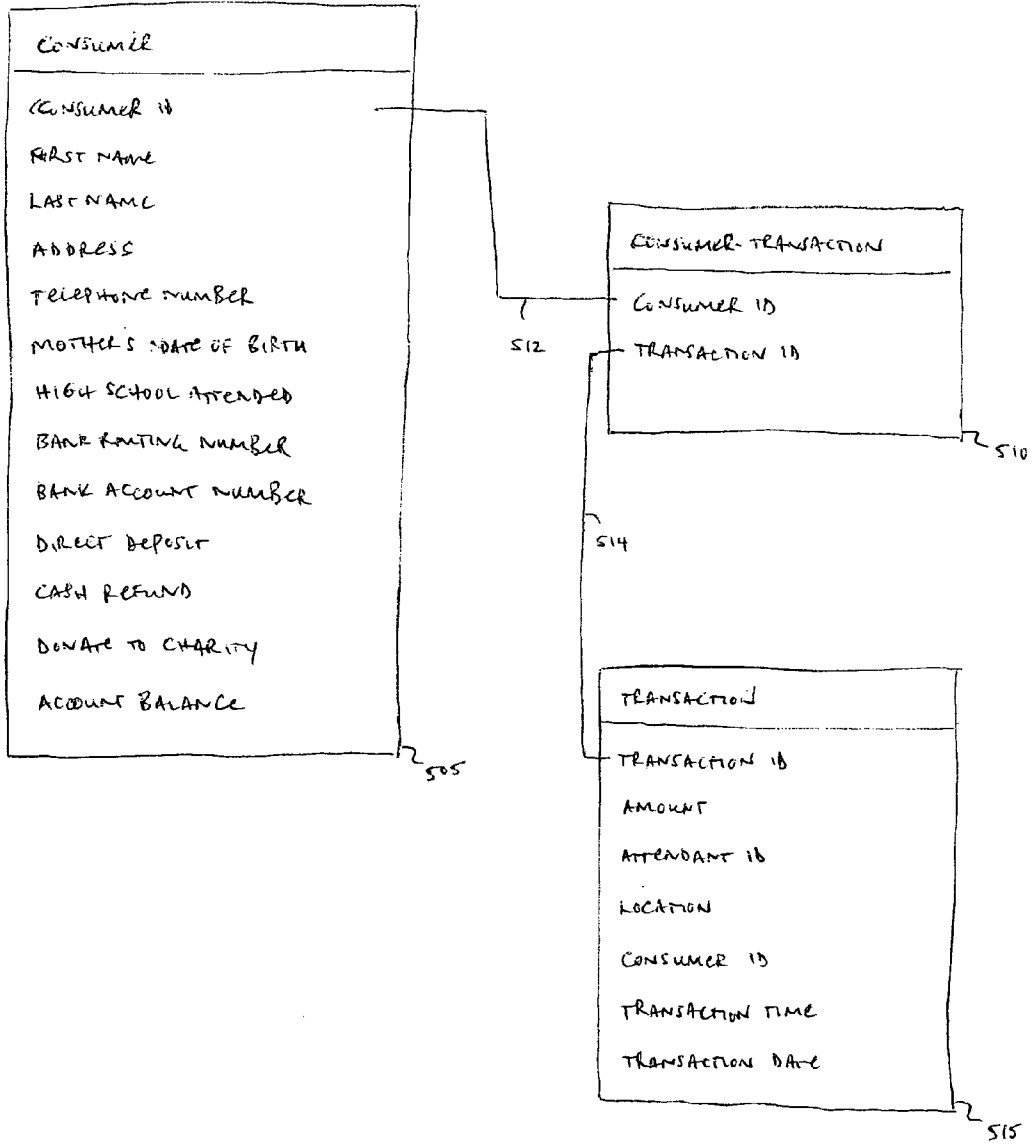 CONSUMER
CONSUMER ID
FIRST NAME
LAST NAME
ADDRESS
TELEPHONE NUMBER
MOTHER'S DATE OF BIRTH
HIGH SCHOOL ATTENDED
BANK ROUTING NUMBER
BANK ACCOUNT NUMBER
DIRECT DEPOSIT
CASH REFUND
DONATE TO CHARITY
ACCOUNT BALANCE
505
512
CONSUMER-TRANSACTION
CONSUMER ID
TRANSACTION ID
510
514
TRANSACTION
TRANSACTION ID
AMOUNT
ATTENDANT ID
LOCATION
CONSUMER ID
TRANSACTION TIME
TRANSACTION DATE
515